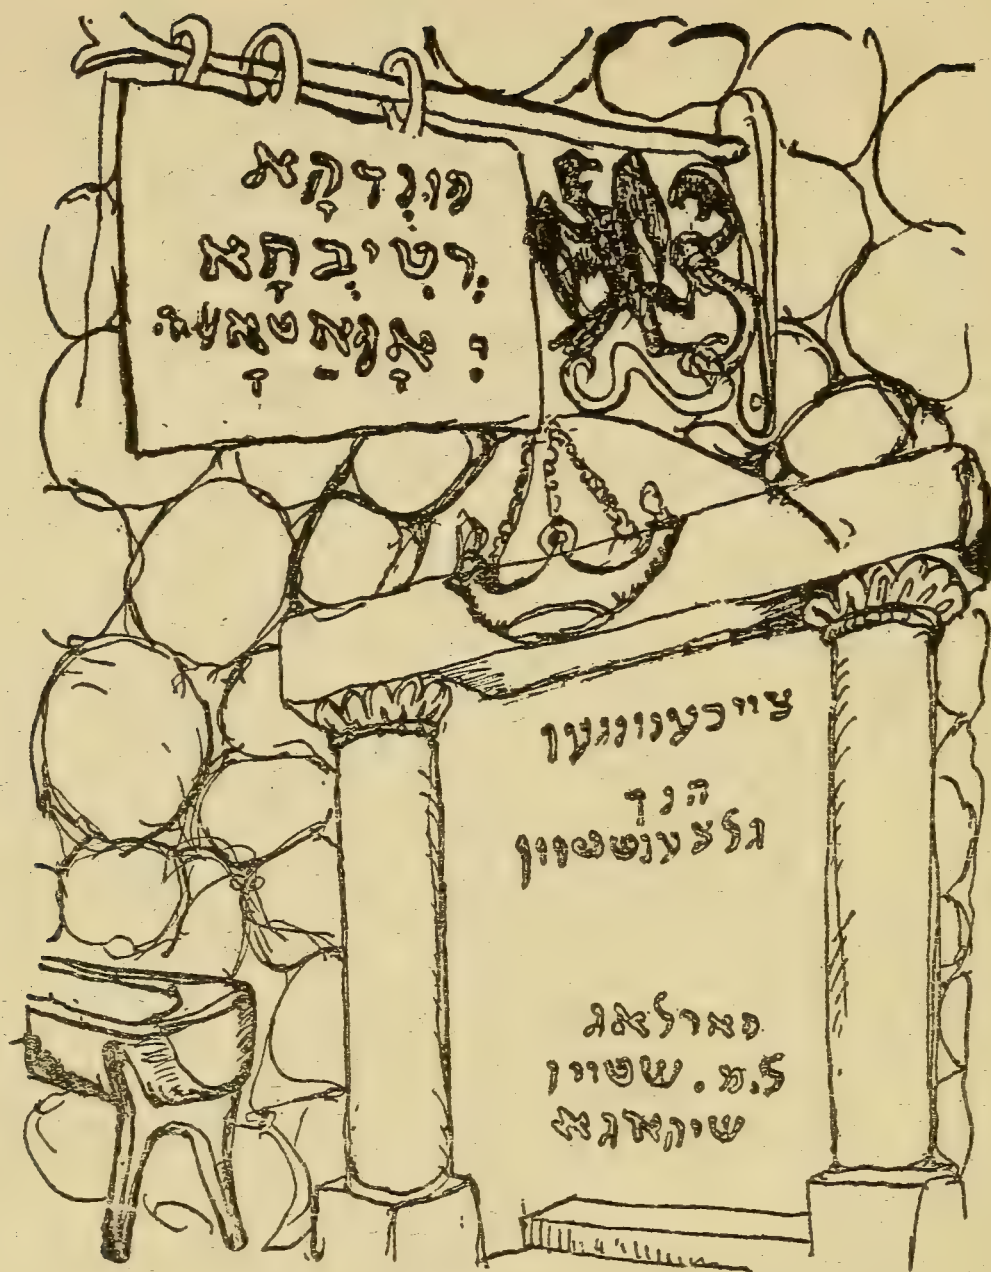 פונְדקָא
רְטִיבְתָא
דְ
צייכענונגען
הנך
גלצענשטיין
פארלאג
ל.מ. שטיין
שיקאגא